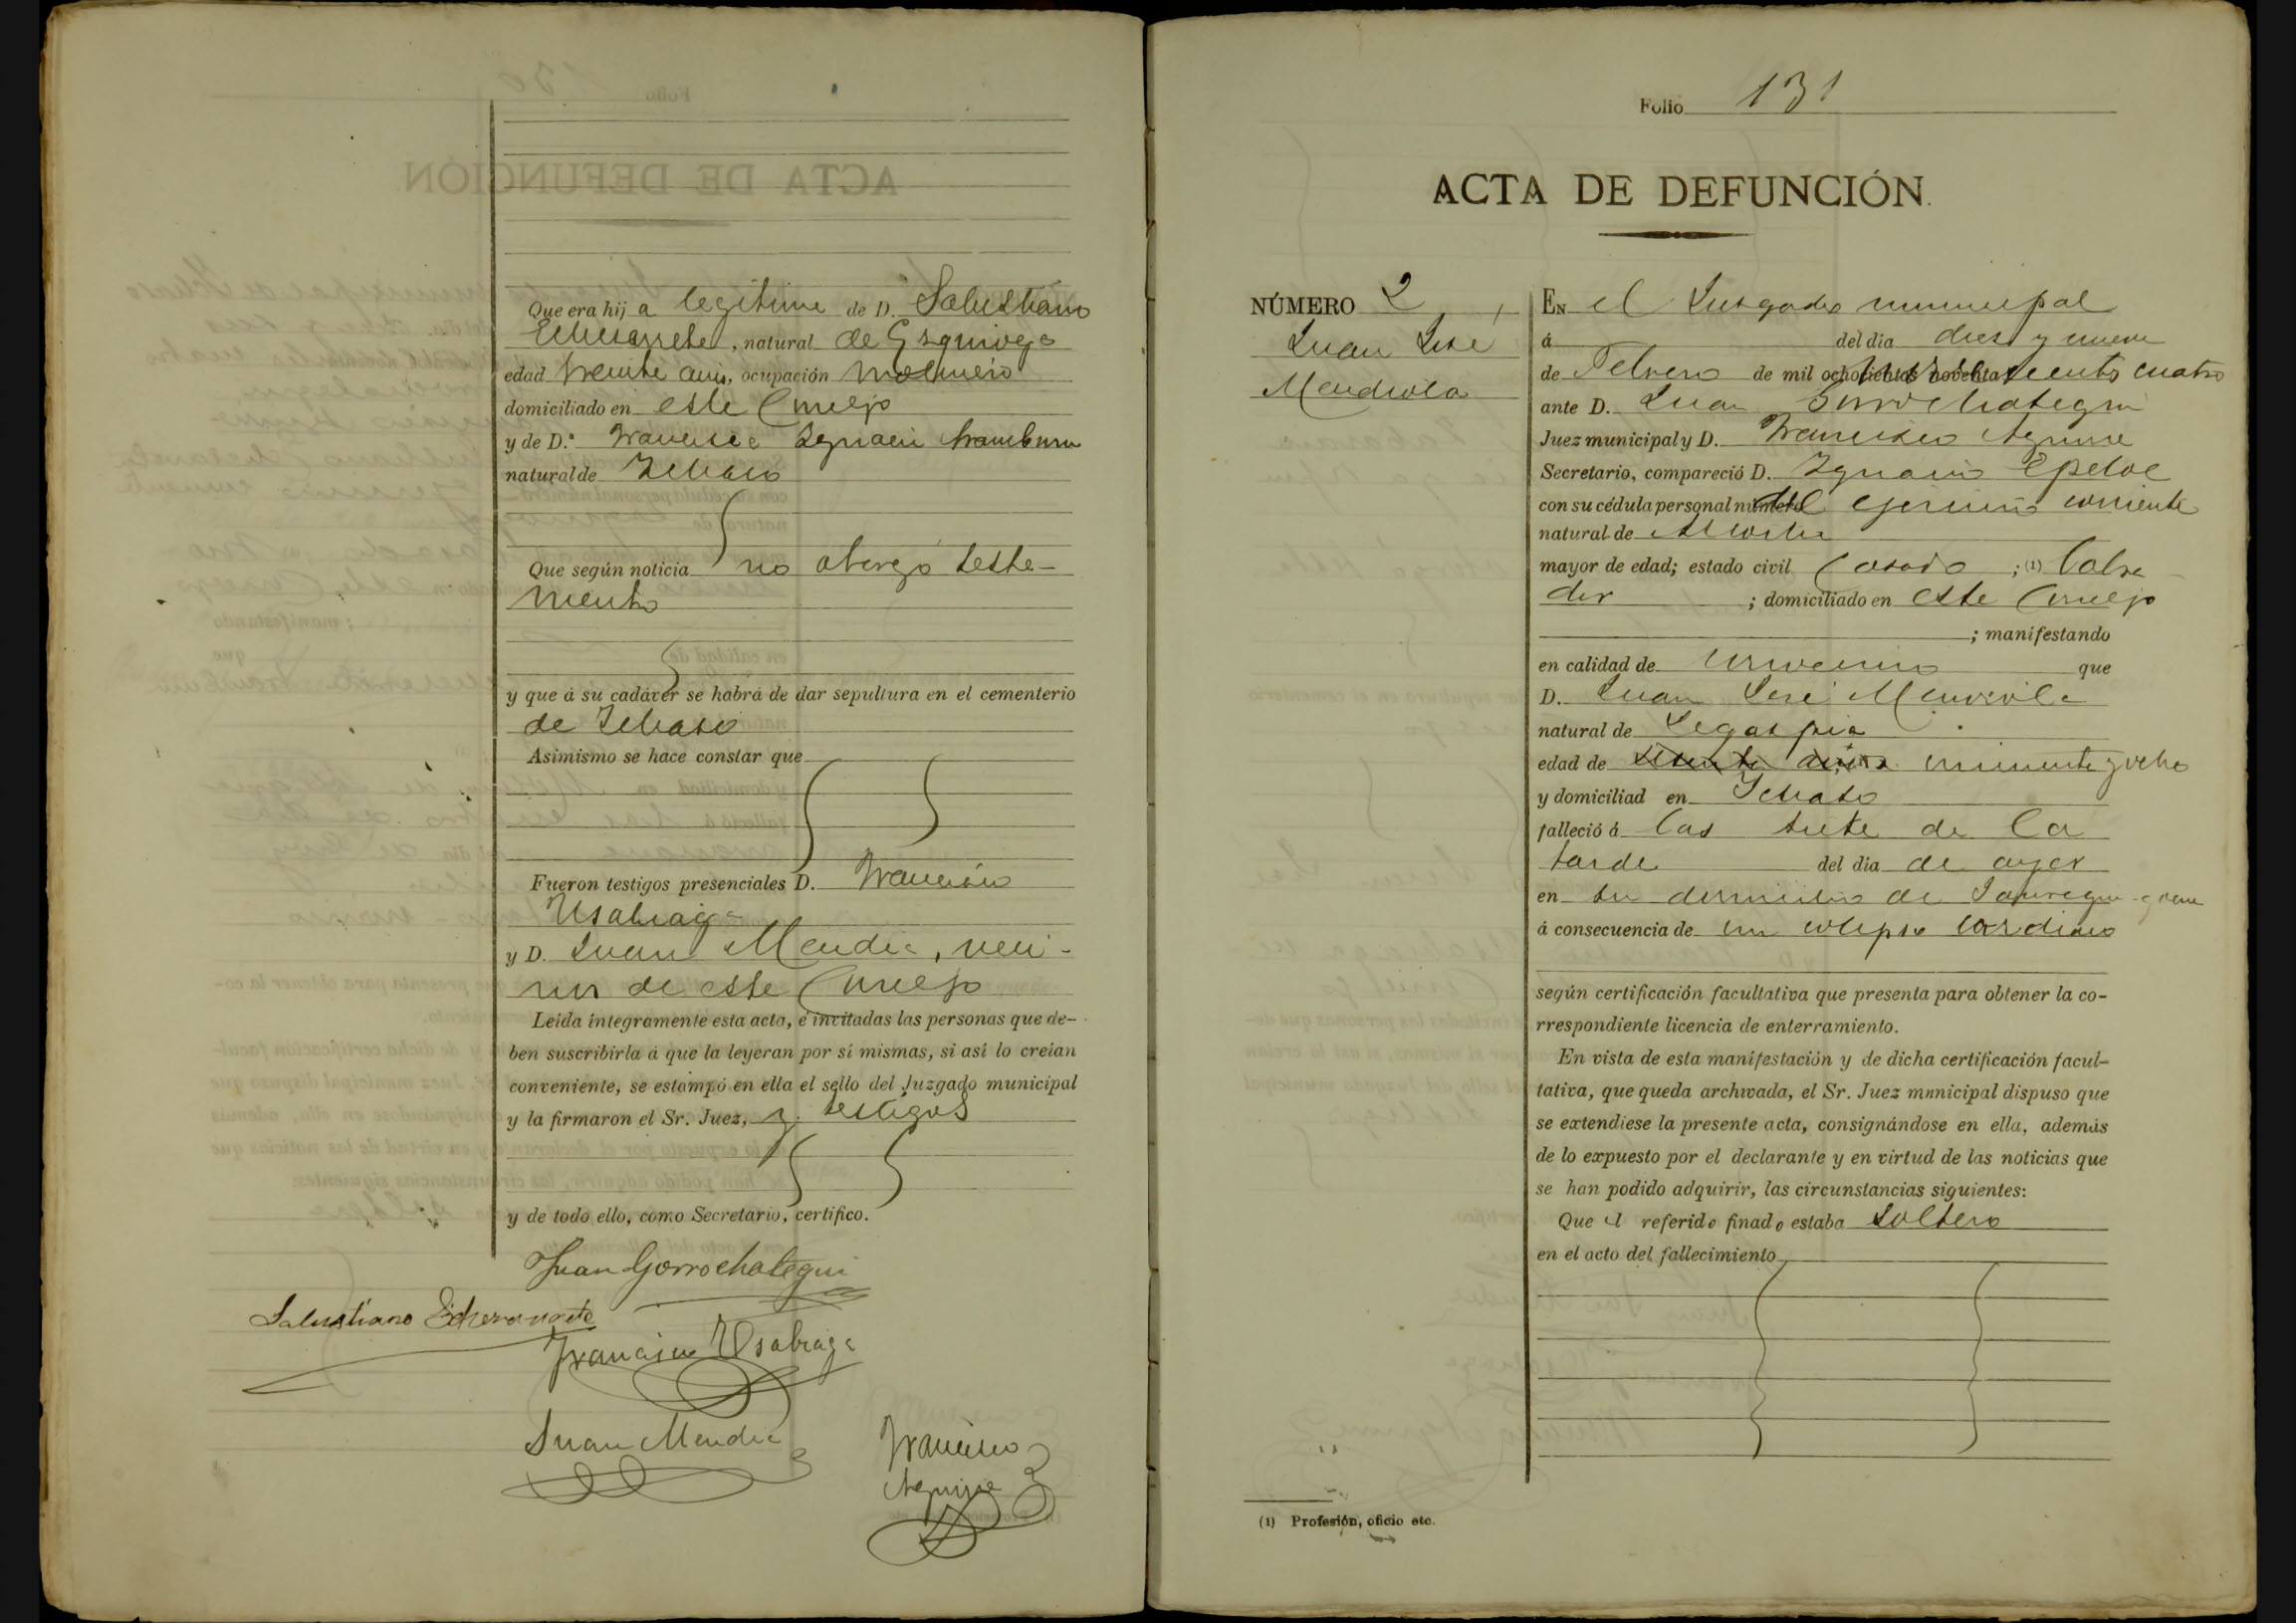 Que era hija legitima de D. Salustiano
Echezarreta, natural de Ezquioga
edad treinta años, ocupación molinero
domiciliado en este Concejo
y de D.ª Francisca Ignacia Aramburu
natural de Ichaso
Que según noticia no otorgó testa-
mento
y que á su cadáver se habrá de dar sepultura en el cementerio
de Ichaso
Asimismo se hace constar que
Fueron testigos presenciales D. Francisco
Usabiaga
y D. Juan Mendia, veci-
nos de este Concejo
Leída íntegramente esta acta, é invitadas las personas que de-
ben suscribirla á que la leyeran por sí mismas, si así lo creían
conveniente, se estampó en ella el sello del Juzgado municipal
y la firmaron el Sr. Juez, y testigos
y de todo ello, como Secretario, certifico.
Juan Gorrochategui
Salustiano Echezarreta
Francisco Usabiaga
Juan Mendia
Francisco
Aguirre
Folio 131
ACTA DE DEFUNCIÓN.
NÚMERO 2
Juan José
Mendiola
EN el Juzgado municipal
á del dia diez y nueve
de Febrero de mil novecientos cuatro
ante D. Juan Gorrochategui
Juez municipal y D. Francisco Aguirre
Secretario, compareció D. Ignacio Epelde
con su cédula personal del ejercicio corriente
natural de
mayor de edad; estado civil Casado ; (1) Labra
dor ; domiciliado en este Concejo
; manifestando
en calidad de convecino que
D. Juan José Mendiola
natural de Legazpia
edad de cincuenta y ocho
y domiciliad en Ichaso
falleció á las siete de la
tarde del dia de ayer
en su domicilio de
á consecuencia de un colapso cardiaco
según certificación facultativa que presenta para obtener la co-
rrespondiente licencia de enterramiento.
En vista de esta manifestación y de dicha certificación facul-
tativa, que queda archivada, el Sr. Juez municipal dispuso que
se extendiese la presente acta, consignándose en ella, además
de lo expuesto por el declarante y en virtud de las noticias que
se han podido adquirir, las circunstancias siguientes:
Que el referido finado estaba soltero
en el acto del fallecimiento
(1) Profesión, oficio etc.